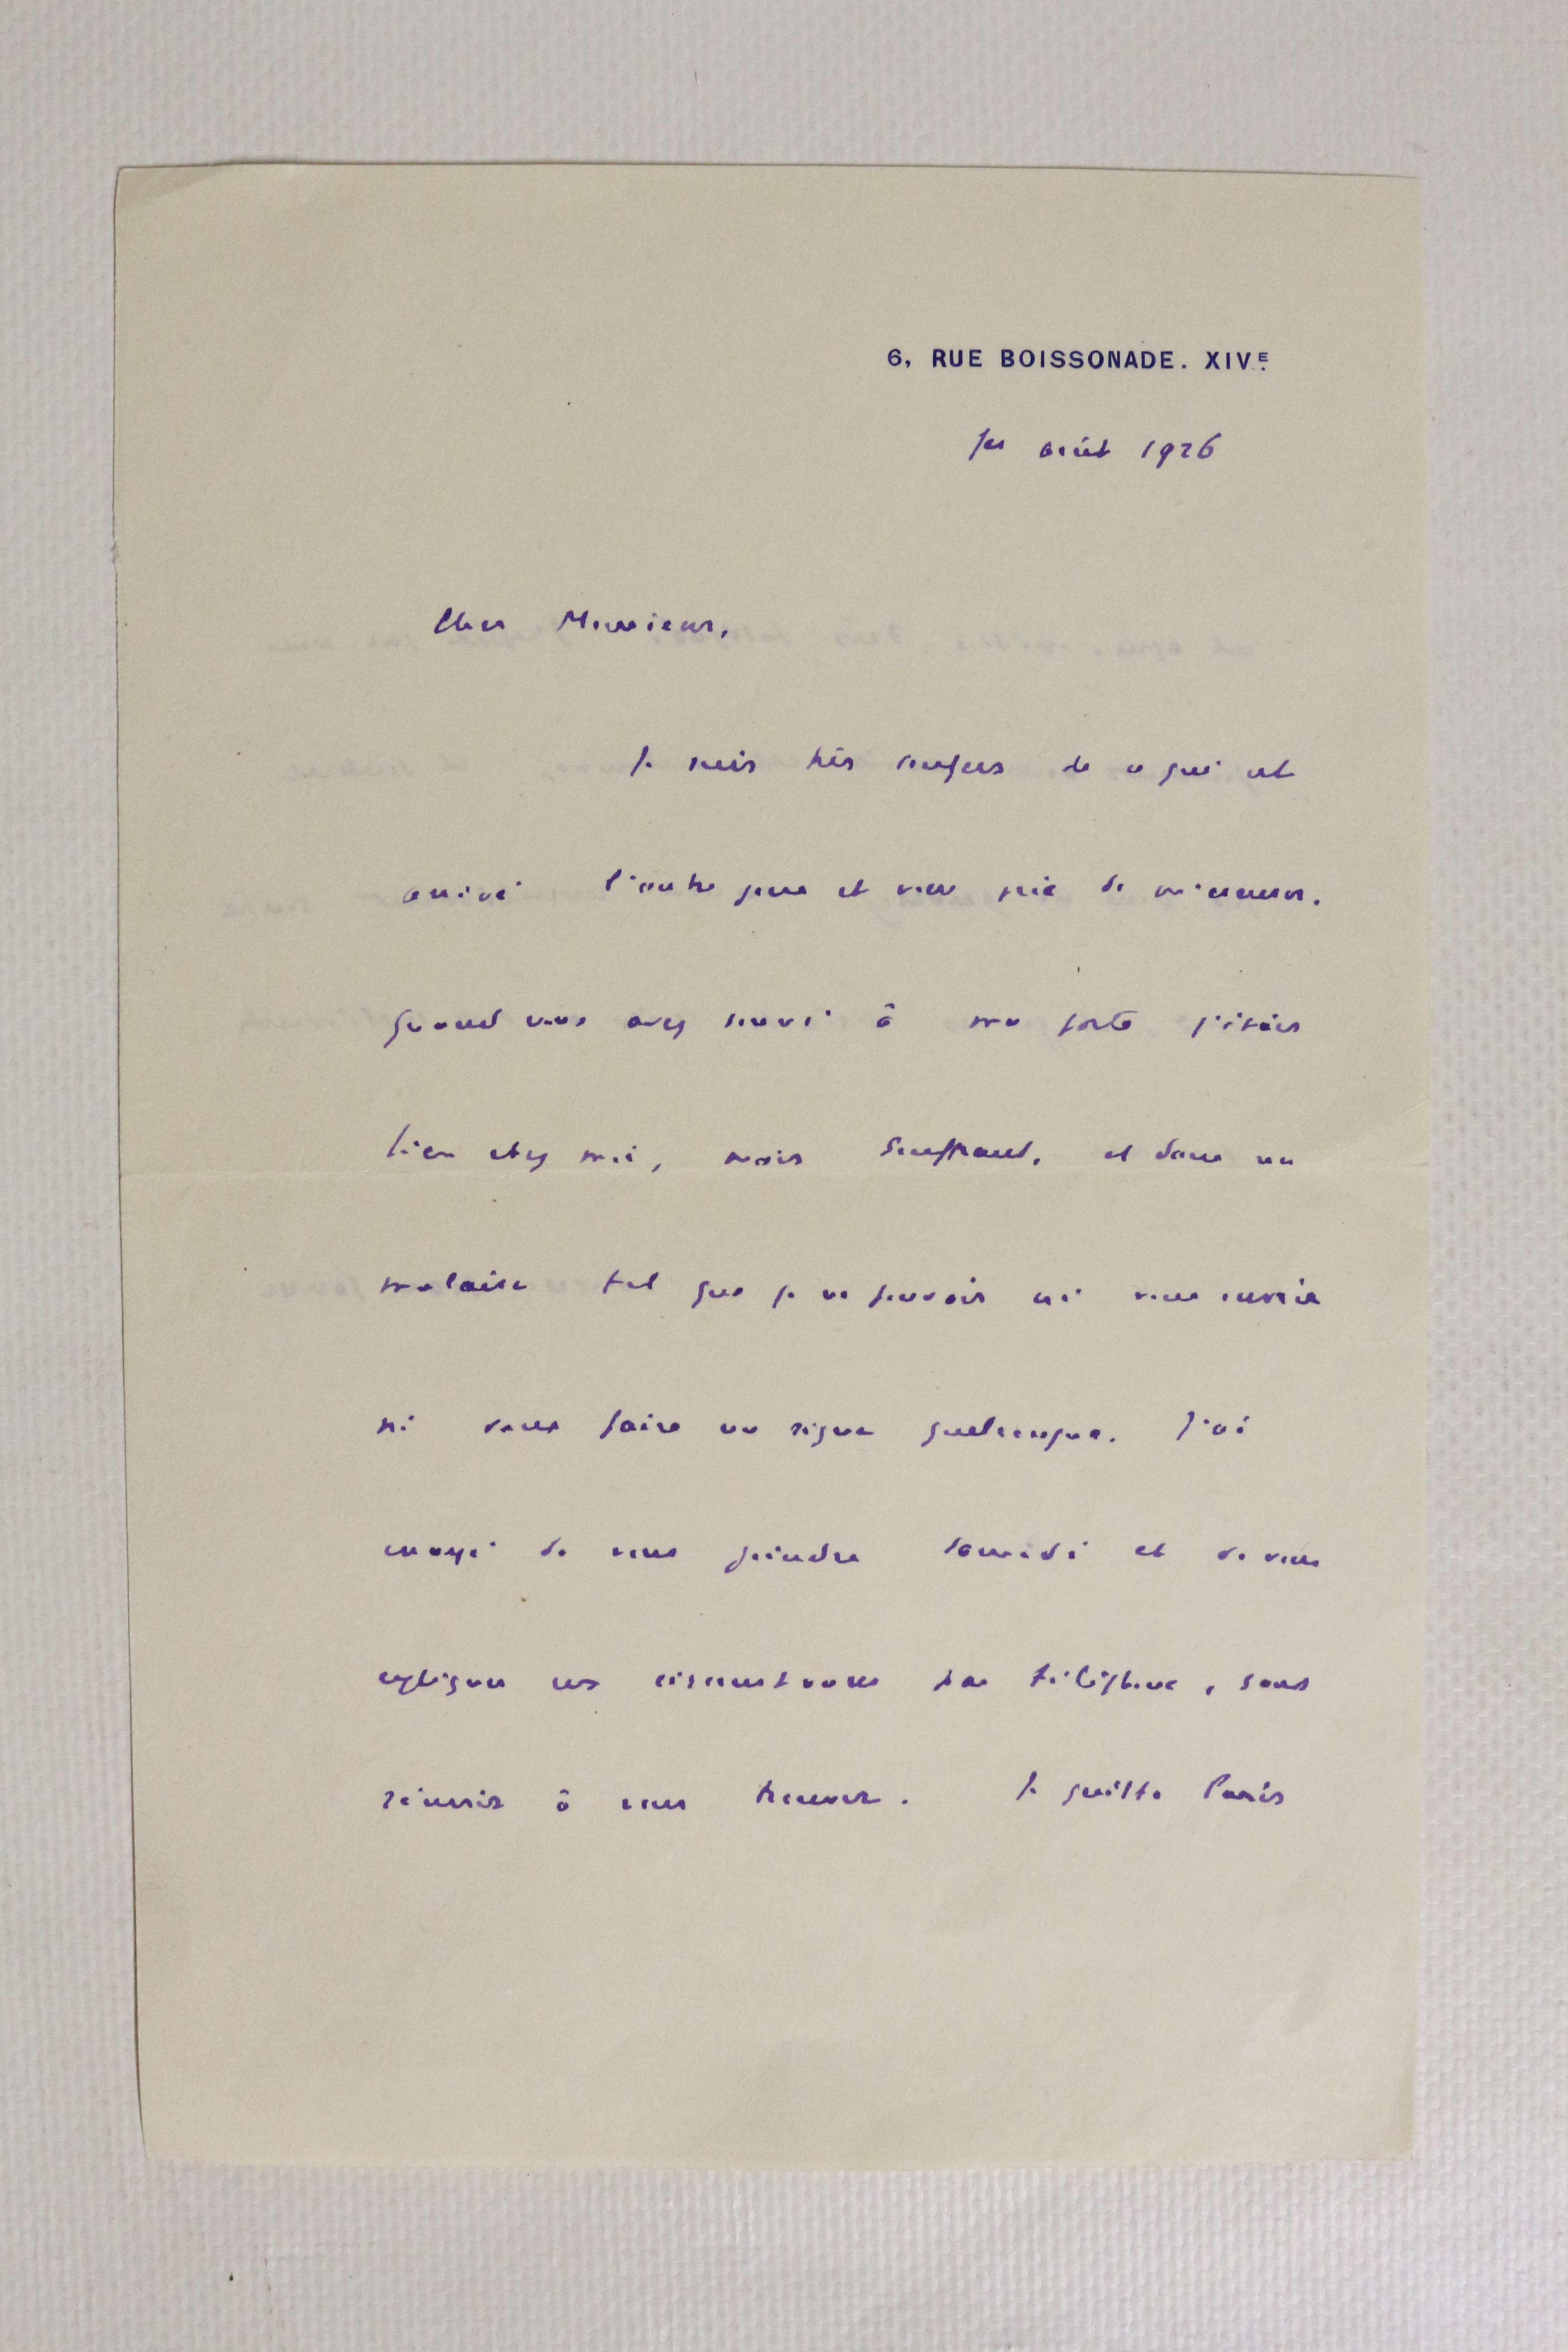 6, RUE BOISSONADE. XIVE
1er août 1926
Cher Monsieur,
Je suis très confus de ce qui est
arrivé l'autre jour et vous prie de m'excuser.
Quand vous avez sonné à ma porte j'étais
bien chez moi, mais souffrant, et dans un
malaise tel que je ne pouvais ni vous ouvrir
ni vous faire un signe quelconque. J'ai
essayé de vous joindre samedi et de vous
expliquer ces circonstances par téléphone, sans
réussir à vous trouver. Je quitte Paris